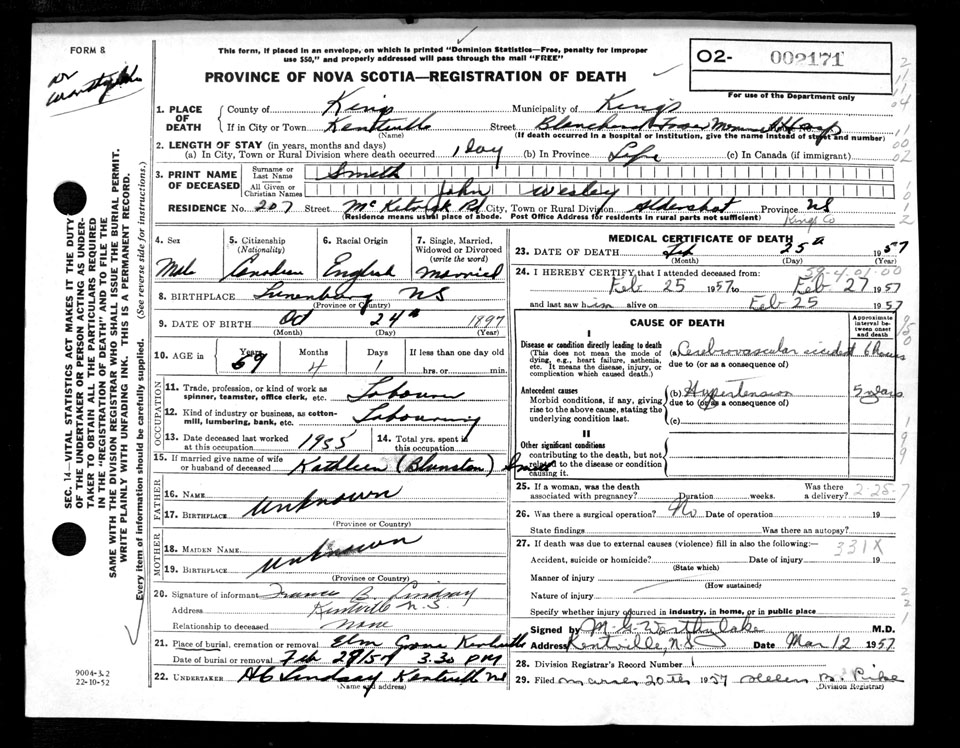 FORM 8
This form, if placed in an envelope, on which is printed "Dominion Statistics—Free, penalty for improper
use $50," and properly addressed will pass through the mail "FREE"
PROVINCE OF NOVA SCOTIA—REGISTRATION OF DEATH
02- 002171
For use of the Department only
1. PLACE OF DEATH
County of Kings Municipality of Kings
If in City or Town Kentville Street Memorial Hosp
(Name) (If death occurred in a hospital or institution, give the name instead of street and number)
2. LENGTH OF STAY (in years, months and days)
(a) In City, Town or Rural Division where death occurred 1 day (b) In Province Life (c) In Canada (if immigrant)
3. PRINT NAME OF DECEASED
Surname or Last Name Smith
All Given or Christian Names John Wesley
RESIDENCE No. 207 Street Rd City, Town or Rural Division Aldershot Province NS
(Residence means usual place of abode. Post Office Address for residents in rural parts not sufficient) Kings Co
4. Sex Male
5. Citizenship (Nationality) Canadian
6. Racial Origin English
7. Single, Married, Widowed or Divorced (write the word) Married
8. BIRTHPLACE Lunenburg NS
(Province or Country)
9. DATE OF BIRTH Oct 24th 1897
(Month) (Day) (Year)
10. AGE in Years 59 Months 4 Days 1 If less than one day old
hrs. or min.
OCCUPATION
11. Trade, profession, or kind of work as spinner, teamster, office clerk, etc. Labourer
12. Kind of industry or business, as cotton-mill, lumbering, bank, etc. Labouring
13. Date deceased last worked at this occupation 1955 14. Total yrs. spent in this occupation
15. If married give name of wife or husband of deceased Kathleen (Blunston) Smith
FATHER
16. NAME Unknown
17. BIRTHPLACE
(Province or Country)
MOTHER
18. MAIDEN NAME Unknown
19. BIRTHPLACE
(Province or Country)
20. Signature of informant B. Lindsay
Address Kentville N.S
Relationship to deceased None
21. Place of burial, cremation or removal Elm Grove Kentville
Date of burial or removal Feb 3.30 PM
22. UNDERTAKER Lindsay Kentville NS
(Name and address)
MEDICAL CERTIFICATE OF DEATH
23. DATE OF DEATH Feb 25th 1957
(Month) (Day) (Year)
39-4.01-00
24. I HEREBY CERTIFY, that I attended deceased from:
Feb 25 1957 to Feb 27 1957
and last saw him alive on Feb 25 1957
CAUSE OF DEATH
Approximate interval between onset and death
I
Disease or condition directly leading to death (a) Cerebrovascular accident 6 hours
(This does not mean the mode of dying, e.g., heart failure, asthenia, etc. It means the disease, injury or complication which caused death.)
due to (or as a consequence of)
Antecedent causes (b) Hypertension 5 years
Morbid conditions, if any, giving rise to the above cause, stating the underlying condition last.
due to (or as a consequence of)
(c)
II
Other significant conditions
contributing to the death, but not related to the disease or condition causing it.
25. If a woman, was the death associated with pregnancy? Duration weeks. Was there a delivery?
26. Was there a surgical operation? No Date of operation 19
State findings Was there an autopsy?
27. If death was due to external causes (violence) fill in also the following:— 331X
Accident, suicide or homicide? Date of injury 19
(State which)
Manner of injury
(How sustained)
Nature of injury
Specify whether injury occurred in industry, in home, or in public place
Signed by M. G. Worthylake M.D.
Address Kentville, N.S Date Mar 12 1957
28. Division Registrar's Record Number 1
29. Filed March 20th 1957 Helen B.
(Division Registrar)
SEC. 14—VITAL STATISTICS ACT MAKES IT THE DUTY
OF THE UNDERTAKER OR PERSON ACTING AS UNDERTAKER TO OBTAIN ALL THE PARTICULARS REQUIRED
IN THE "REGISTRATION OF DEATH" AND TO FILE THE
SAME WITH THE DIVISION REGISTRAR WHO SHALL ISSUE THE BURIAL PERMIT.
WRITE PLAINLY WITH UNFADING INK. THIS IS A PERMANENT RECORD.
Every item of information should be carefully supplied. (See reverse side for instructions.)
9004-3.2
22-10-52